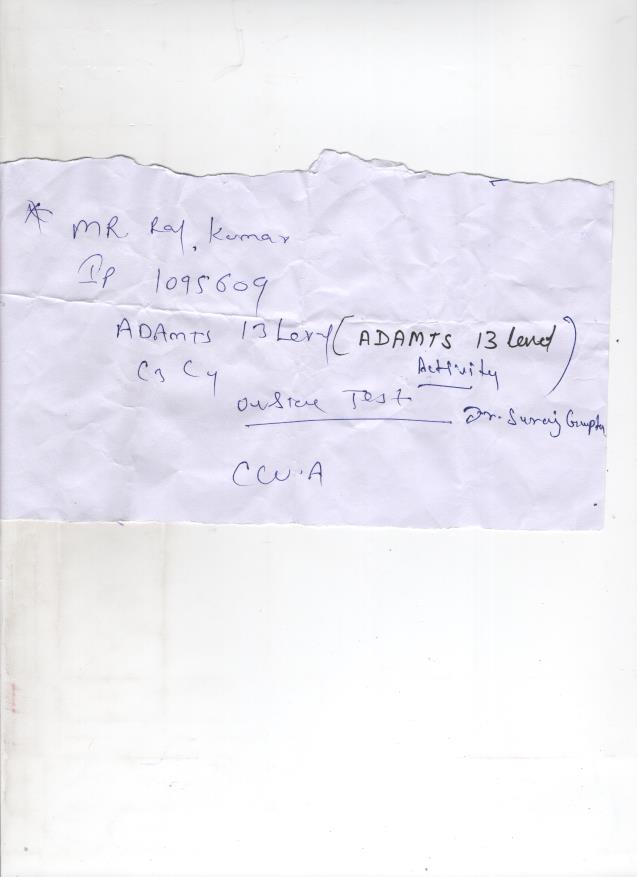 MR Raj. Kumar
IP 1095609
ADAMTS 13 Level (ADAMTS 13 level
Activity)
C3 C4
Outside Test
Dr. Suraj Gupta
CCU-A